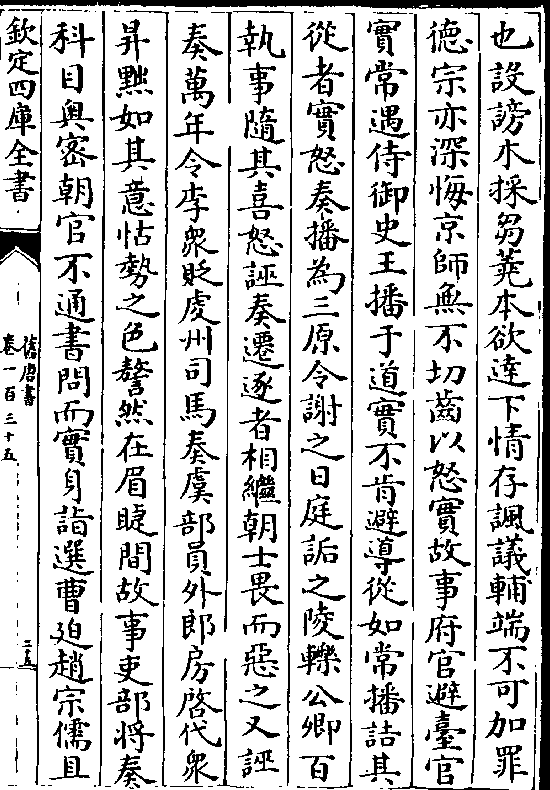 也設謗木採芻蕘本欲達下情存諷議輔端不可加罪
德宗亦深悔京師無不切齒以怒實故事府官避臺官
實常遇侍御史王播于道實不肯避導從如常播詰其
從者實怒奏播為三原令謝之日庭詬之陵轢公卿百
執事隨其喜怒誣奏遷逐者相繼朝士畏而惡之又誣
奏萬年令李衆貶虔州司馬奏虞部員外郎房啓代衆
昇黜如其意怙勢之色謷然在眉睫間故事吏部將奏
科目奥密朝官不通書問而實身詣選曹廹趙宗儒且
欽定四庫全書
舊唐書
卷一百三十五
二五